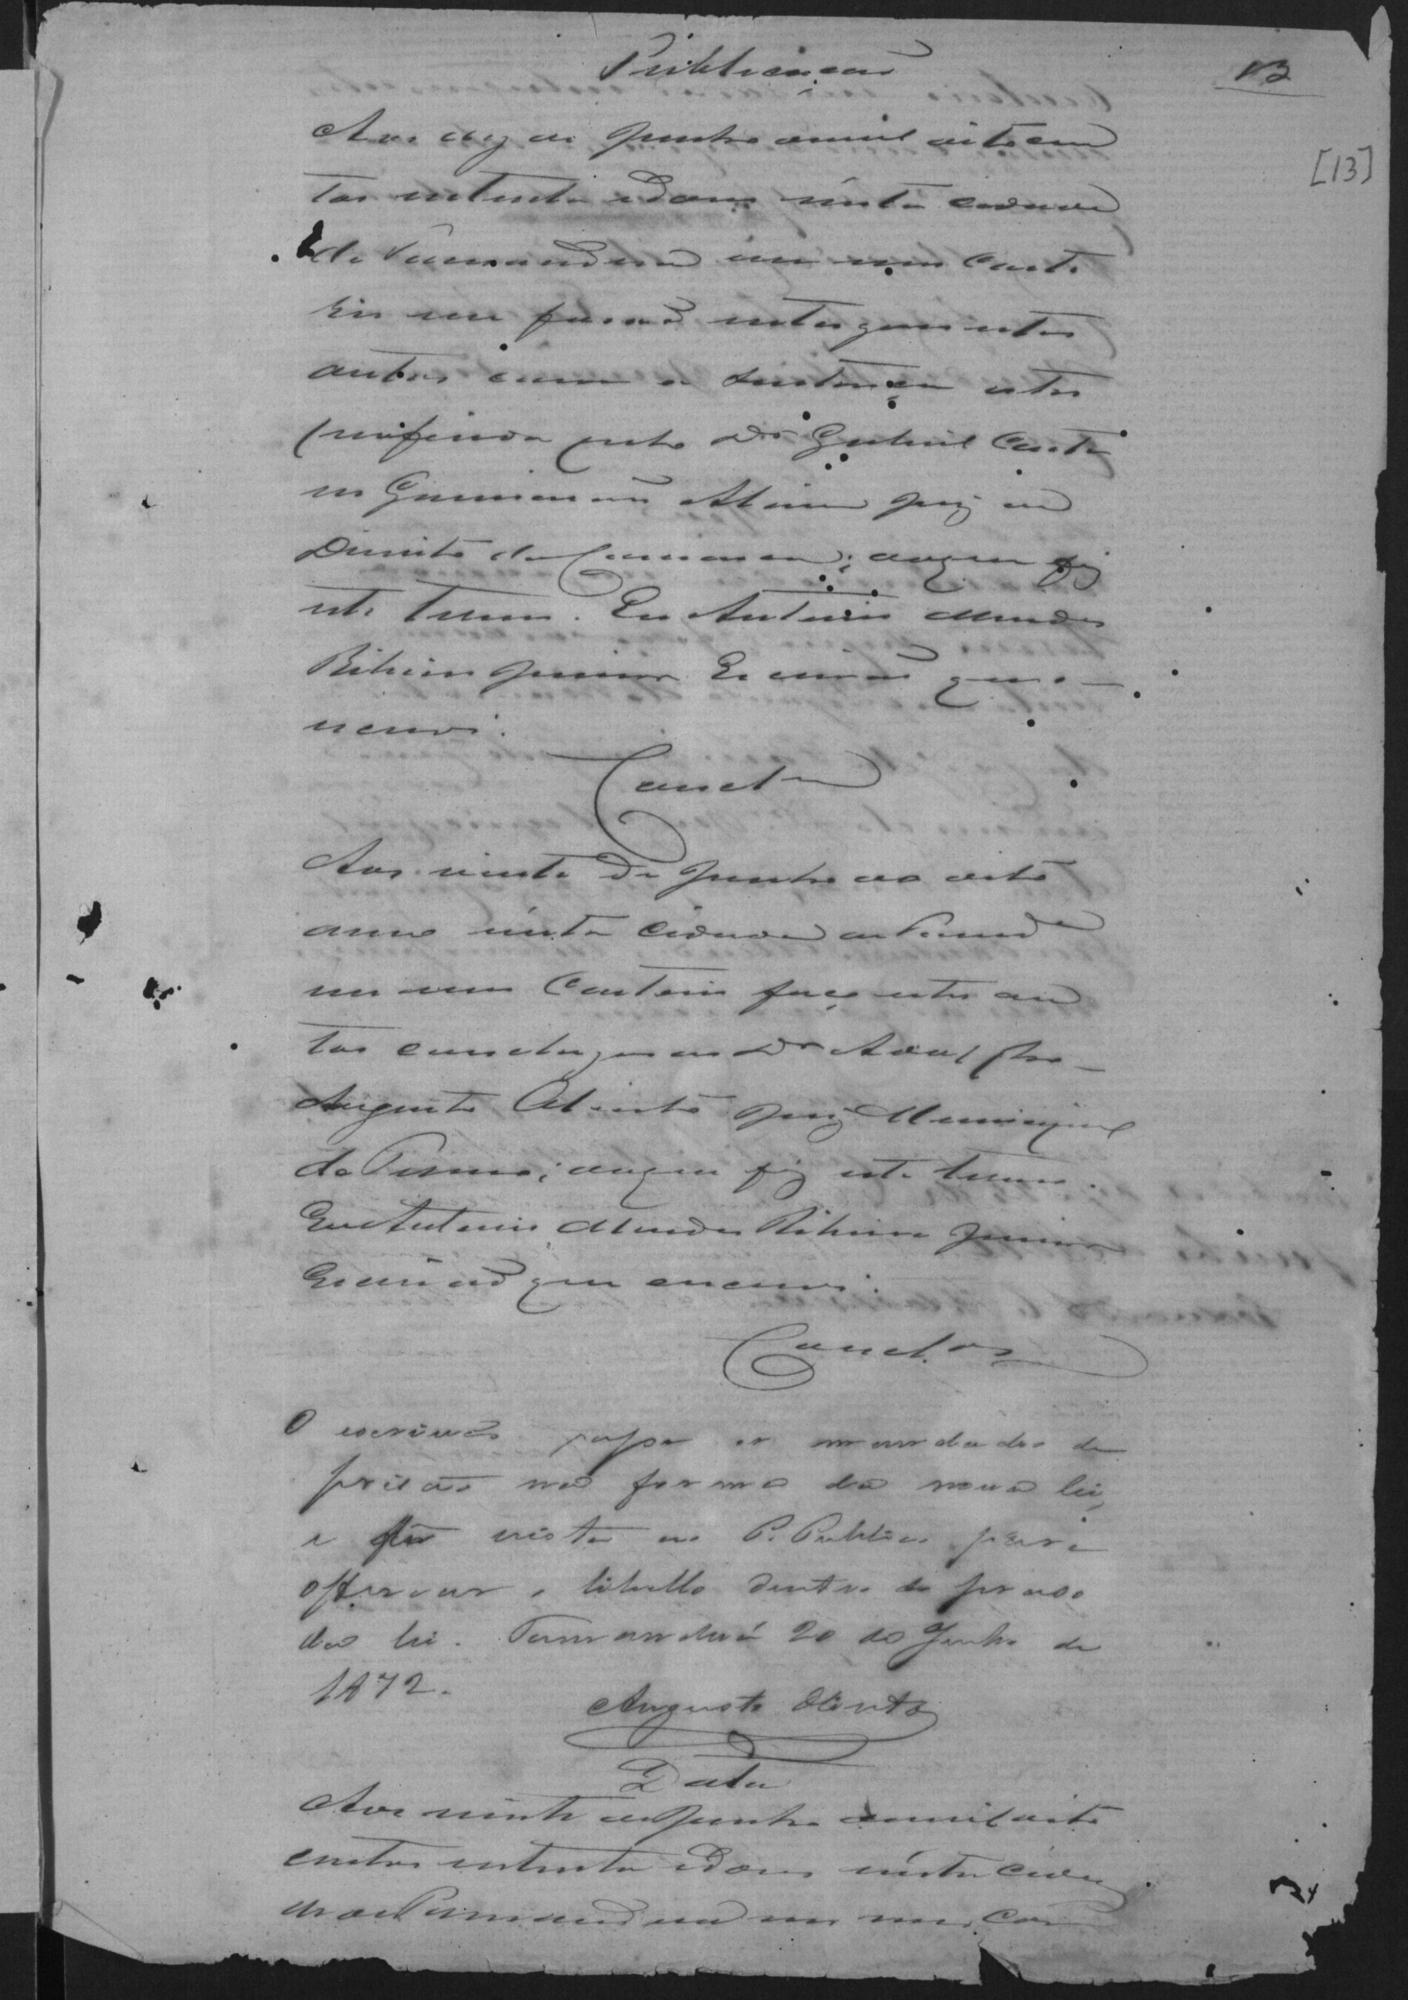 Publicação
13
[13]
Aos dez de Junho de mil oitocen
tos setenta e dous nesta cidade
de Tamanduá em meu Carto
rio me forão entregues estes
autos com a sentença retro
proferida pelo Dr Gabriel Caeta
no Guimarães Alvim Juiz de
Direito da Comarca; do que fiz
este termo. Eu Antonio Mendes
Ribeiro Junior Escrivão que o
escrevi.
Conclm
Aos vinte de Junho do dito
anno nesta Cidade de Tamandª
em meu Cartorio faço estes au
tos conclusos ao Dr Adolpho
Augusto Olinto Juiz Municipal
do Termo; do que fiz este termo.
Eu Antonio Mendes Ribeiro Junior
Escrivão que escrevi.
Conclos
O escrivão passe os mandados de
prisão na forma da nova lei,
e dê vista ao P. Publico para
offerecer o libello dentro do praso
da lei. Tamanduá 20 de Junho de
1872.
Augusto Olinto
Data
Aos vinte de Junho de mil oito
centos setenta e dous nesta Cida
de de Tamanduá em meu Car